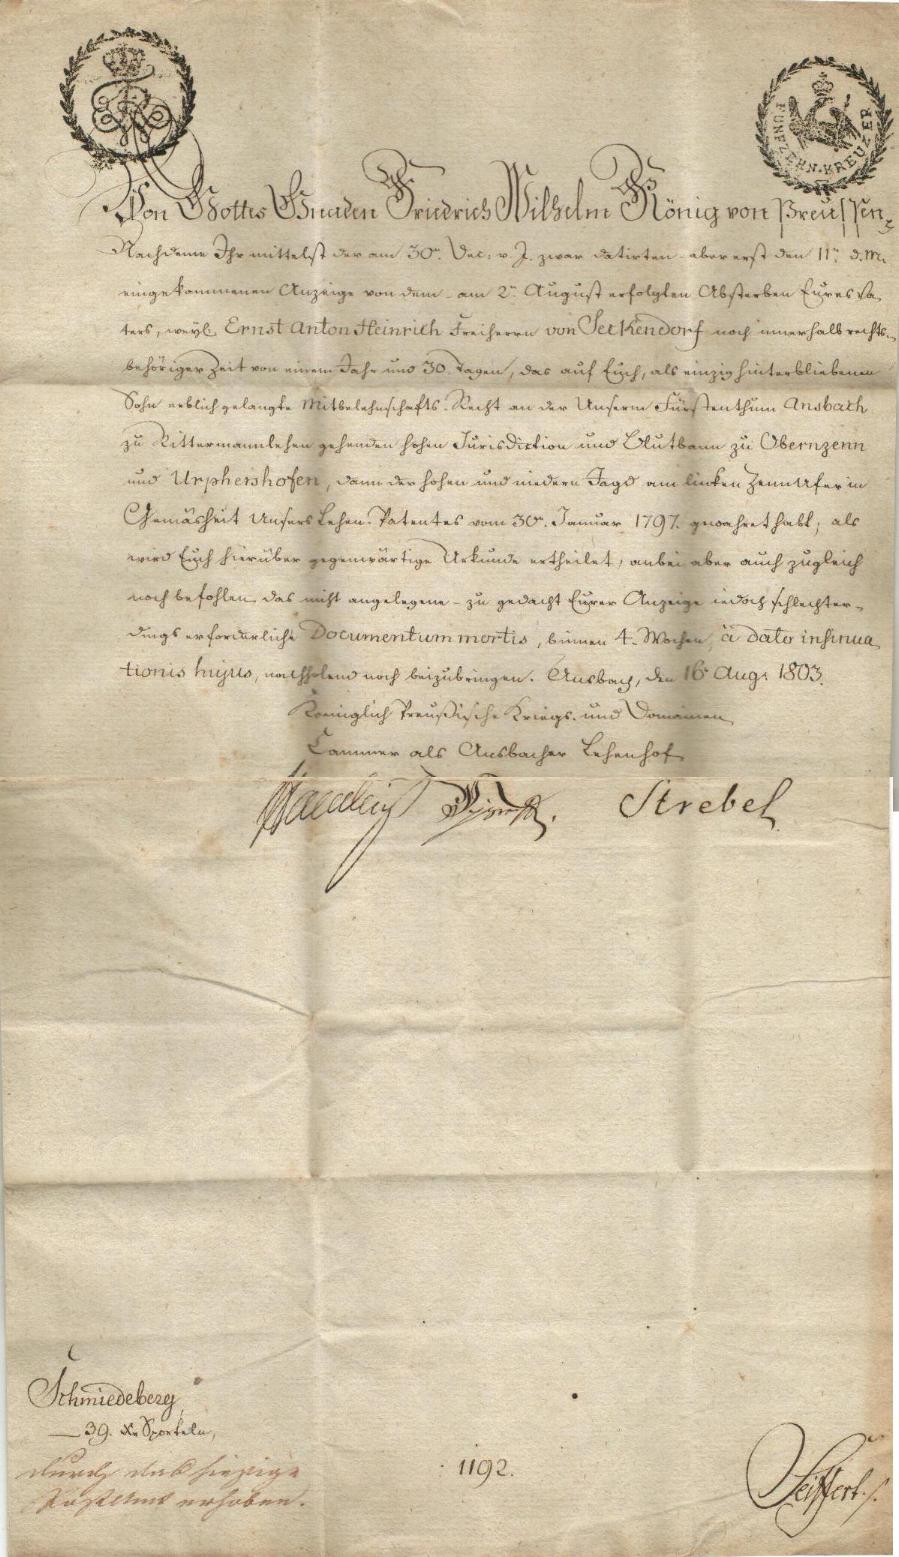 FÜNFZEHN KREUZER
Von Gottes Gnaden Friedrich Wilhelm König von Preussen
Nachdeme Ihr mittelst der am 30n. Dec: v. J. zwar datirten aber erst den 11n. d. M.
eingekommenen Anzeige von dem am 2n. August erfolgten Absterben Eures Va-
ters, weyl. Ernst Anton Heinrich Freiherrn von Seckendorf noch innerhalb rechts-
behöriger Zeit von einem Jahr und 30. Tagen, das auf Euch, als einzig hinterbliebenen
Sohn erblich gelangte Mitbelehnschafts-Recht an der Unserm Fürstenthum Ansbach
zu Rittermannlehen gehenden hohen Jurisdiction und Blutbann zu Obernzenn
und Urphershofen, dann der hohen und niedern Jagd am linken Zenn Ufer in
Gemäsheit Unsers Lehen-Patentes vom 30n. Januar 1797. gewahret habt, als
wird Euch hierüber gegenwärtige Urkunde ertheilet, anbei aber auch zugleich
noch befohlen das nicht angelegene - zu gedacht Eurer Anzeige jedoch schlechter-
dings erforderliche Documentum mortis, binnen 4. Wochen, à dato insinua
tionis hujus, nachholend noch beizubringen. Ansbach, den 16n Aug: 1803.
Koeniglich Preußische Kriegs- und Domainen
Cammer als Ansbacher Lehenhof
Strebel
Schmiedeberg
39. Xr Sportuln,
durch das hiesige
Postamt erhoben.
1192.
Seiffert.